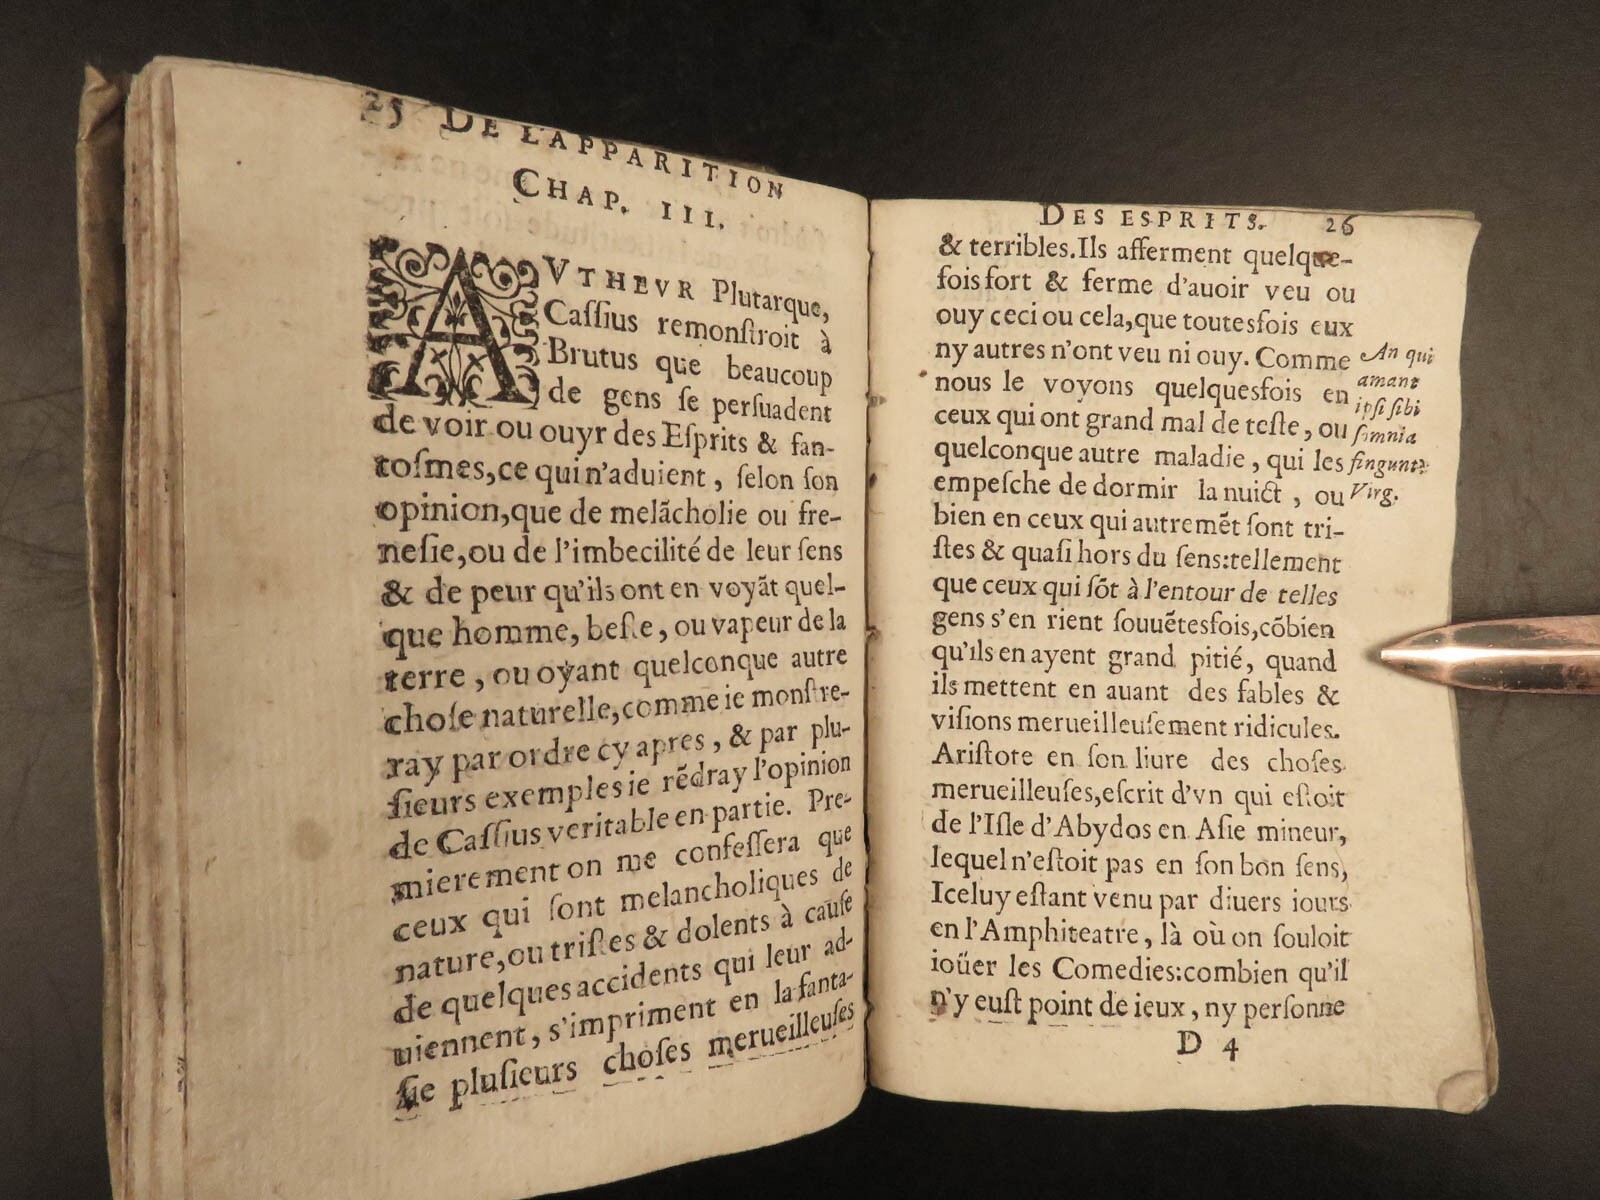 25 DE L'APPARITION
CHAP. III.
AVTHEVR Plutarque,
Caſſius remonſtroit à
Brutus que beaucoup
de gens ſe perſuadent
de voir ou ouyr des Eſprits & fan-
toſmes,ce qui n'aduient, ſelon ſon
opinion,que de melãcholie ou fre-
neſie,ou de l'imbecilité de leur ſens
& de peur qu'ils ont en voyãt quel-
que homme, beſte, ou vapeur de la
terre, ou oyant quelconque autre
choſe naturelle,comme ie monſtre-
ray par ordre cy apres, & par plu-
ſieurs exemples ie rẽdray l'opinion
de Caſſius veritable en partie. Pre-
mierement on me confeſſera que
ceux qui ſont melancholiques de
nature,ou triſtes & dolents à cauſe
de quelques accidents qui leur ad-
uiennent, s'impriment en la fanta-
ſie pluſieurs choſes merueilleuſes
DES ESPRITS. 26
& terribles.Ils afferment quelque-
fois fort & ferme d'auoir veu ou
ouy ceci ou cela,que toutesfois eux
ny autres n'ont veu ni ouy. Comme
nous le voyons quelquesfois en
ceux qui ont grand mal de teſte, ou
quelconque autre maladie, qui les
empeſche de dormir la nuict, ou
bien en ceux qui autremẽt ſont tri-
ſtes & quaſi hors du ſens:tellement
que ceux qui ſõt à l'entour de telles
gens s'en rient ſouuẽtesfois,cõbien
qu'ils en ayent grand pitié, quand
ils mettent en auant des fables &
viſions merueilleuſement ridicules.
Ariſtote en ſon liure des choſes
merueilleuſes,eſcrit d'vn qui eſtoit
de l'Iſle d'Abydos en Aſie mineur,
lequel n'eſtoit pas en ſon bon ſens,
Iceluy eſtant venu par diuers iours
en l'Amphiteatre, là où on ſouloit
ioüer les Comedies:combien qu'il
n'y euſt point de ieux, ny perſonne
D 4
An qui
amant
ipſi ſibi
ſomnia
fingunt?
Virg.